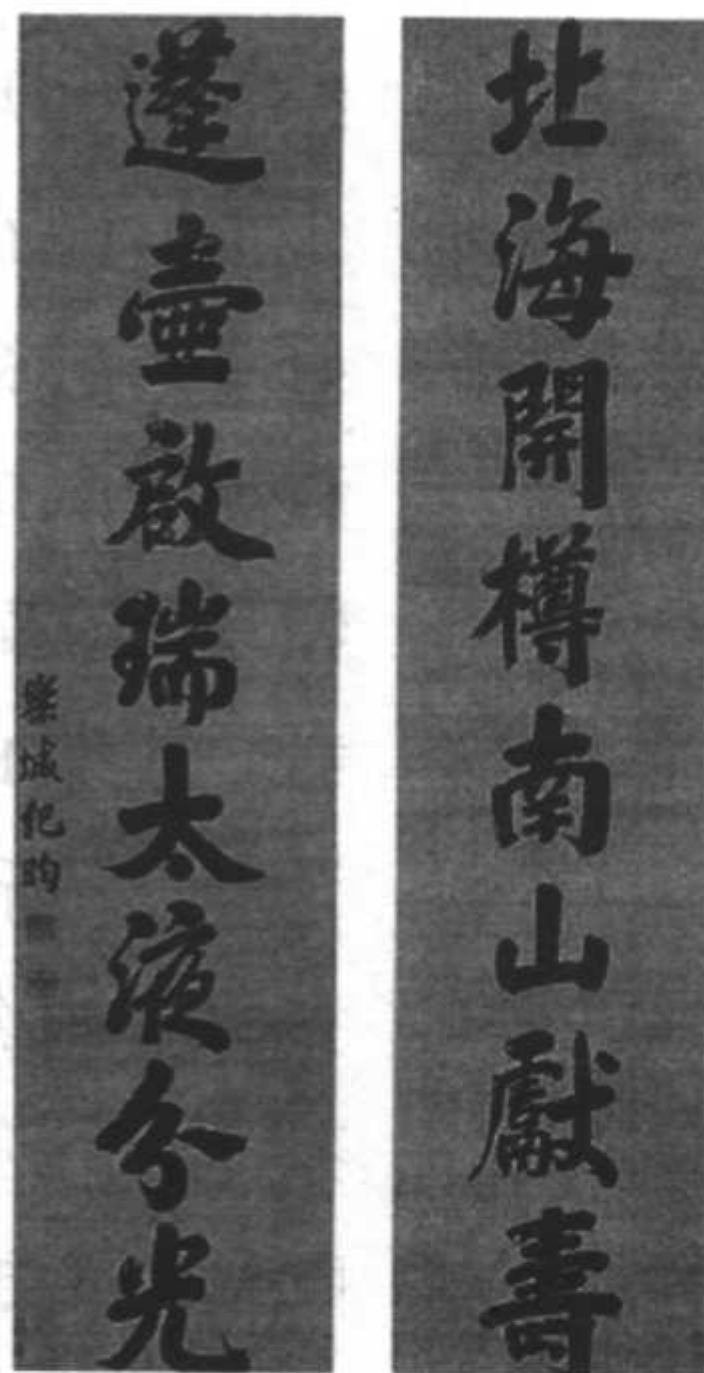 北海開樽南山獻壽
蓬壺啟瑞太液分光
紀昀